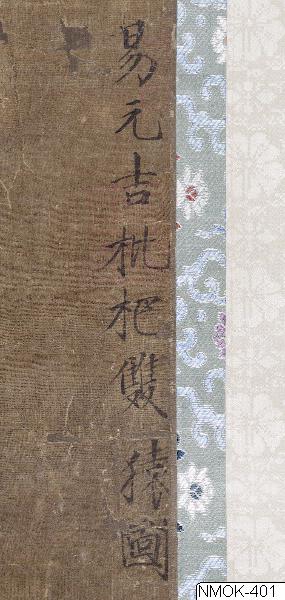 易元吉枇杷雙猿圖
NMOK-401